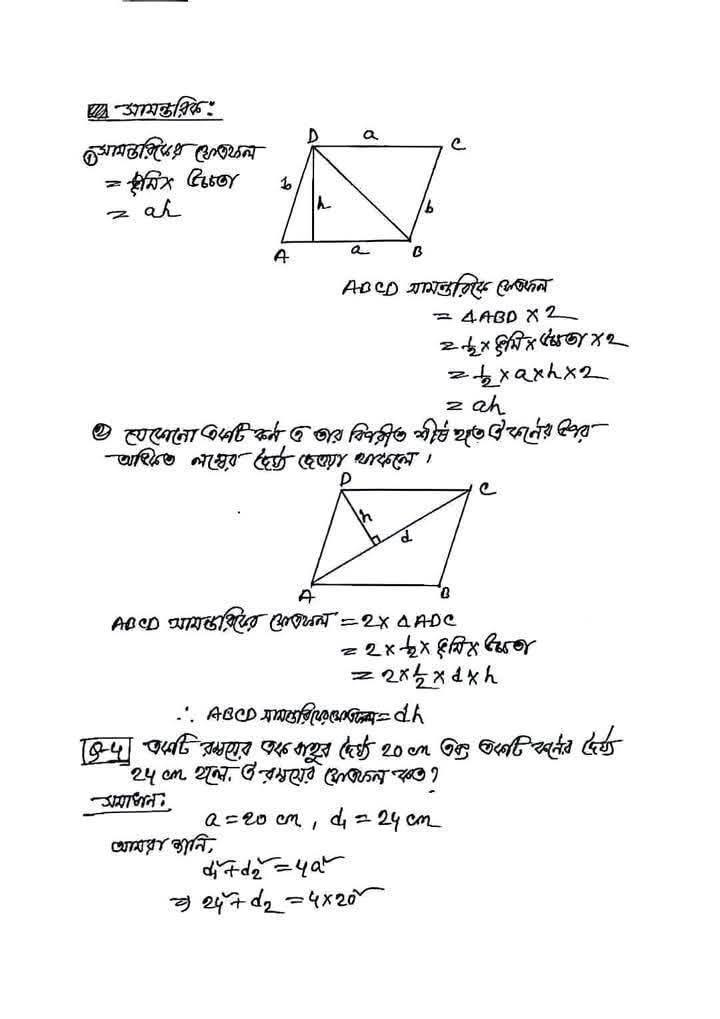 সামন্তরিক:
① সামন্তরিকের ক্ষেত্রফল
= ভূমি × উচ্চতা
= ah
D a C
b h b
A a B
ABCD সামন্তরিকে ক্ষেত্রফল
= ΔABD × 2
= ½ × ভূমি × উচ্চতা × 2
= ½ × a × h × 2
= ah
② যেকোনো একটি কর্ণ ও তার বিপরীত শীর্ষ হতে ঐ কর্নের উপর
অংকিত লম্বের দৈর্ঘ্য দেওয়া থাকলে।
D C
h d
A B
ABCD সামন্তরিকের ক্ষেত্রফল = 2 × ΔADC
= 2 × ½ × ভূমি × উচ্চতা
= 2 × ½ × d × h
∴ ABCD সামন্তরিকের ক্ষেত্রফল = dh
Q-4 একটি রম্বসের এক বাহুর দৈর্ঘ্য 20 cm এবং একটি কর্নের দৈর্ঘ্য
24 cm হলে, ঐ রম্বসের ক্ষেত্রফল কত?
সমাধান:
a = 20 cm, d₁ = 24 cm
আমরা জানি,
d₁² + d₂² = 4a²
⇒ 24² + d₂ = 4 × 20²